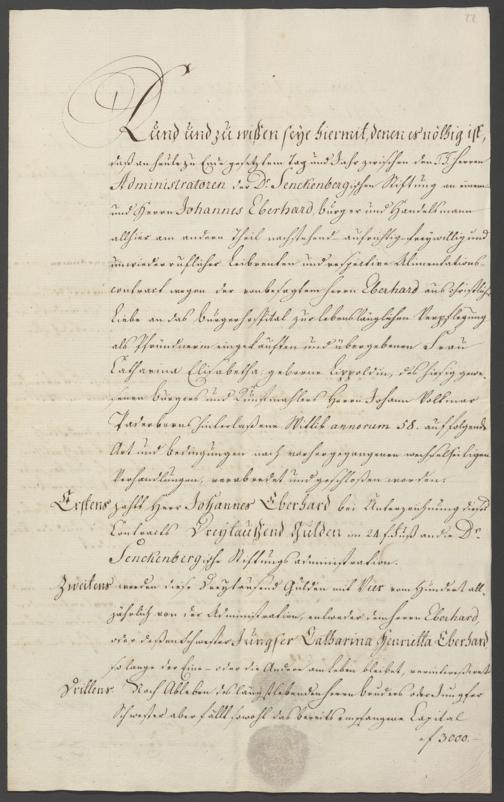 Kund und zu wissen seye hiermit, denen es nöthig ist,
daß an heute zu Ende gesetztem Tag und Jahr zwischen den Herren
Administratoren der Dr. Senckenbergischen Stiftung an einem
und Herrn Johannes Eberhard, Burger und Handelsmann
allhier am andern Theil nachstehend-aufrichtig-freywillig und
unwiederruflicher Leibrenten und respective Alimentations-
contract wegen der von besagtem Herrn Eberhard aus christlicher
Liebe an das Bürgerhospital zur lebenslänglichen Verpflegung
als Pfründnerin eingekauften und übergebenen Frau
Catharina Elisabetha, geborne Lippoldin, des hiesig gewe-
senen Burgers und Herrn Johann Volkmar
Paderborns hinterlassene Wittib annorum 58. auf folgende
Art und Bedingungen nach vorhergegangenen wechselseitigen
Verhandlungen, verabredet und geschlossen worden.
Erstens zahlt Herr Johannes Eberhard bei Unterzeichnung dieses
Contracts Dreytausend Gulden im 24 f. Fuß an die Dr.
Senckenbergische Stiftungsadministration.
Zweitens werden diese Dreytausend Gulden mit Vier vom Hundert all-
jährlich von der Administration, entweder dem Herrn Eberhard,
oder dessen Schwester Jungfer Catharina Henrietta Eberhard
so lange der Eine- oder die Andere am Leben bleibet, verinteressiret.
Drittens. Nach Ableben des längstlebenden Herrn Bruders oder Jungfer
Schwester aber fällt, sowohl das bereits empfangene Capital
f 3000.-